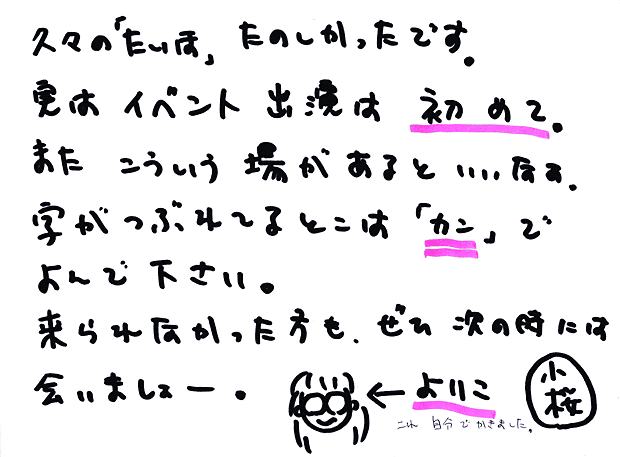 久々の「たいほ」たのしかったです。
実は イベント 出演は 初めて。
また こういう 場が あると いいなぁ。
字が つぶれてる とこは 「カン」で
よんで 下さい。
来られなかった 方も、ぜひ 次の時には
会いましょー。 ← よりこ 小桜
これ 自分で かきました。